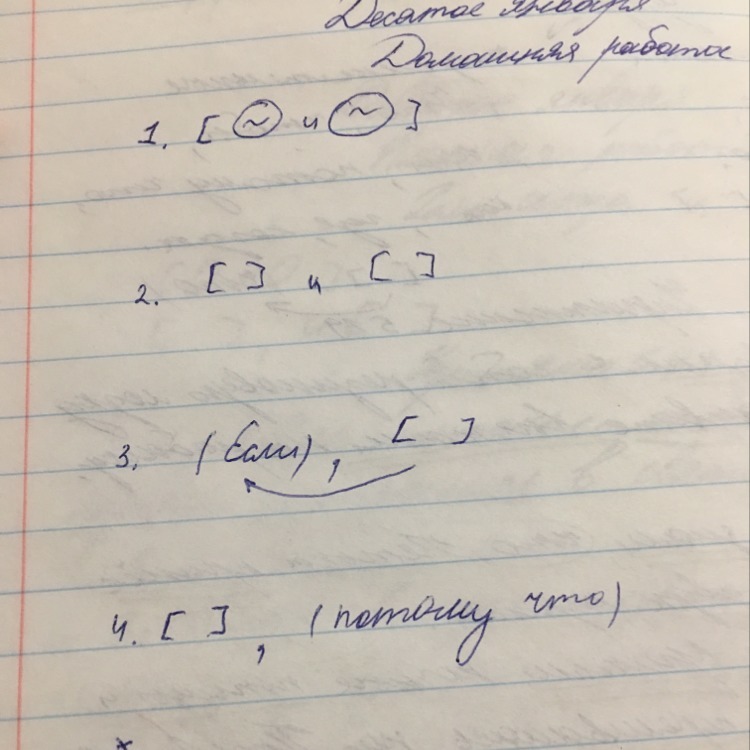 Десатое января
Домашняя работа
1. [ ~ и ~ ]
2. [ ] и [ ]
3. (Если), [ ]
4. [ ], (потому что)